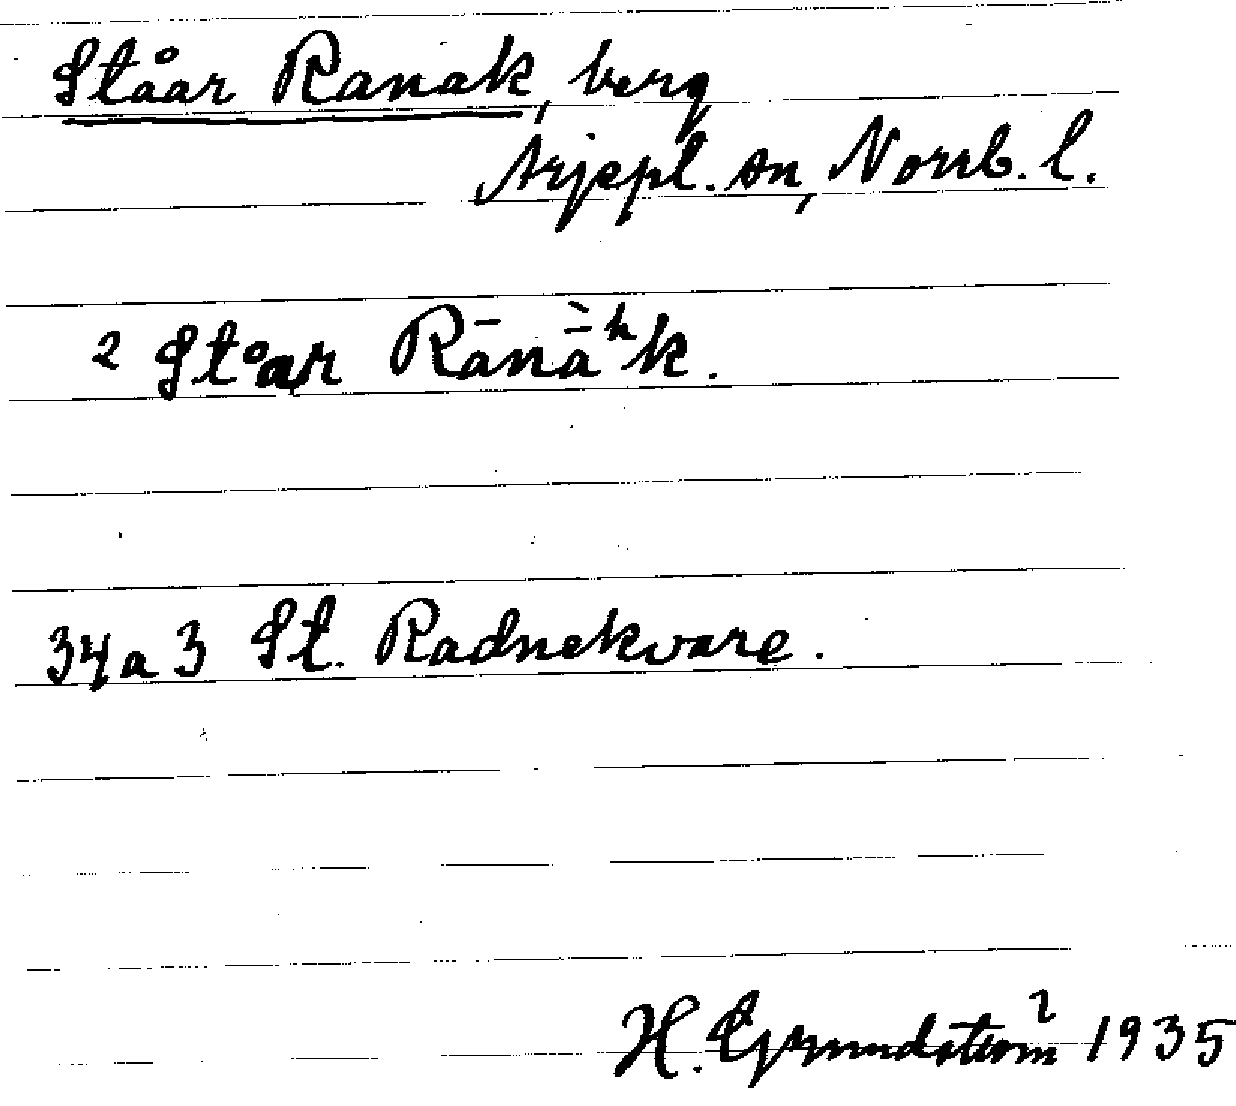 Ståar Ranak, berg
Arjepl. sn, Norrb. l.
2 Stå̄r Rānā̀ʰk.
34a3 St. Radnekvare.
H. Grundström 1935